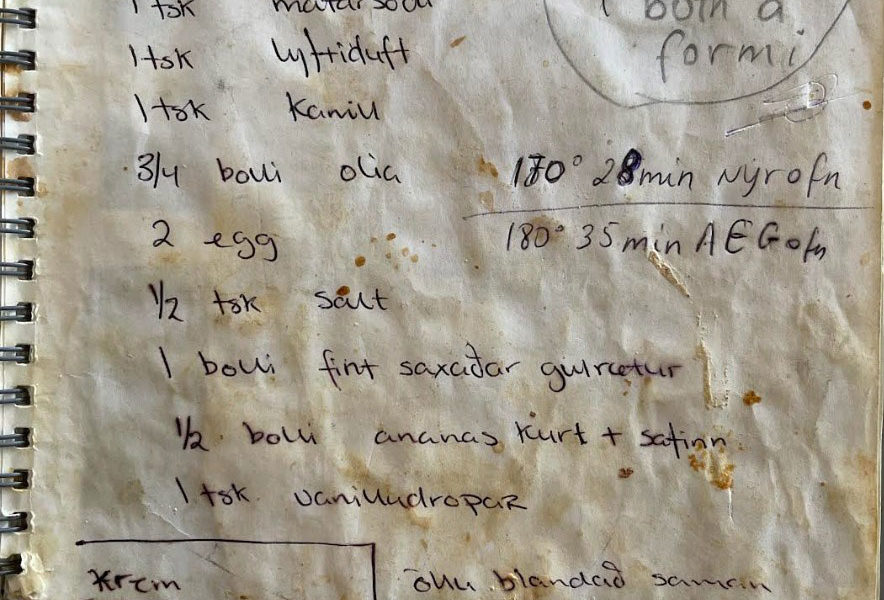 1 tsk matarsódi
1 botn á
formi
1 tsk lyftiduft
1 tsk Kanill
3/4 bolli olía
170° 28 min Nýr ofn
2 egg
180° 35 min AEG ofn
1/2 tsk salt
1 bolli fint saxaðar gulrætur
1/2 bolli ananas Kurl + safinn
1 tsk vanilludropar
Krem
öllu blandað saman